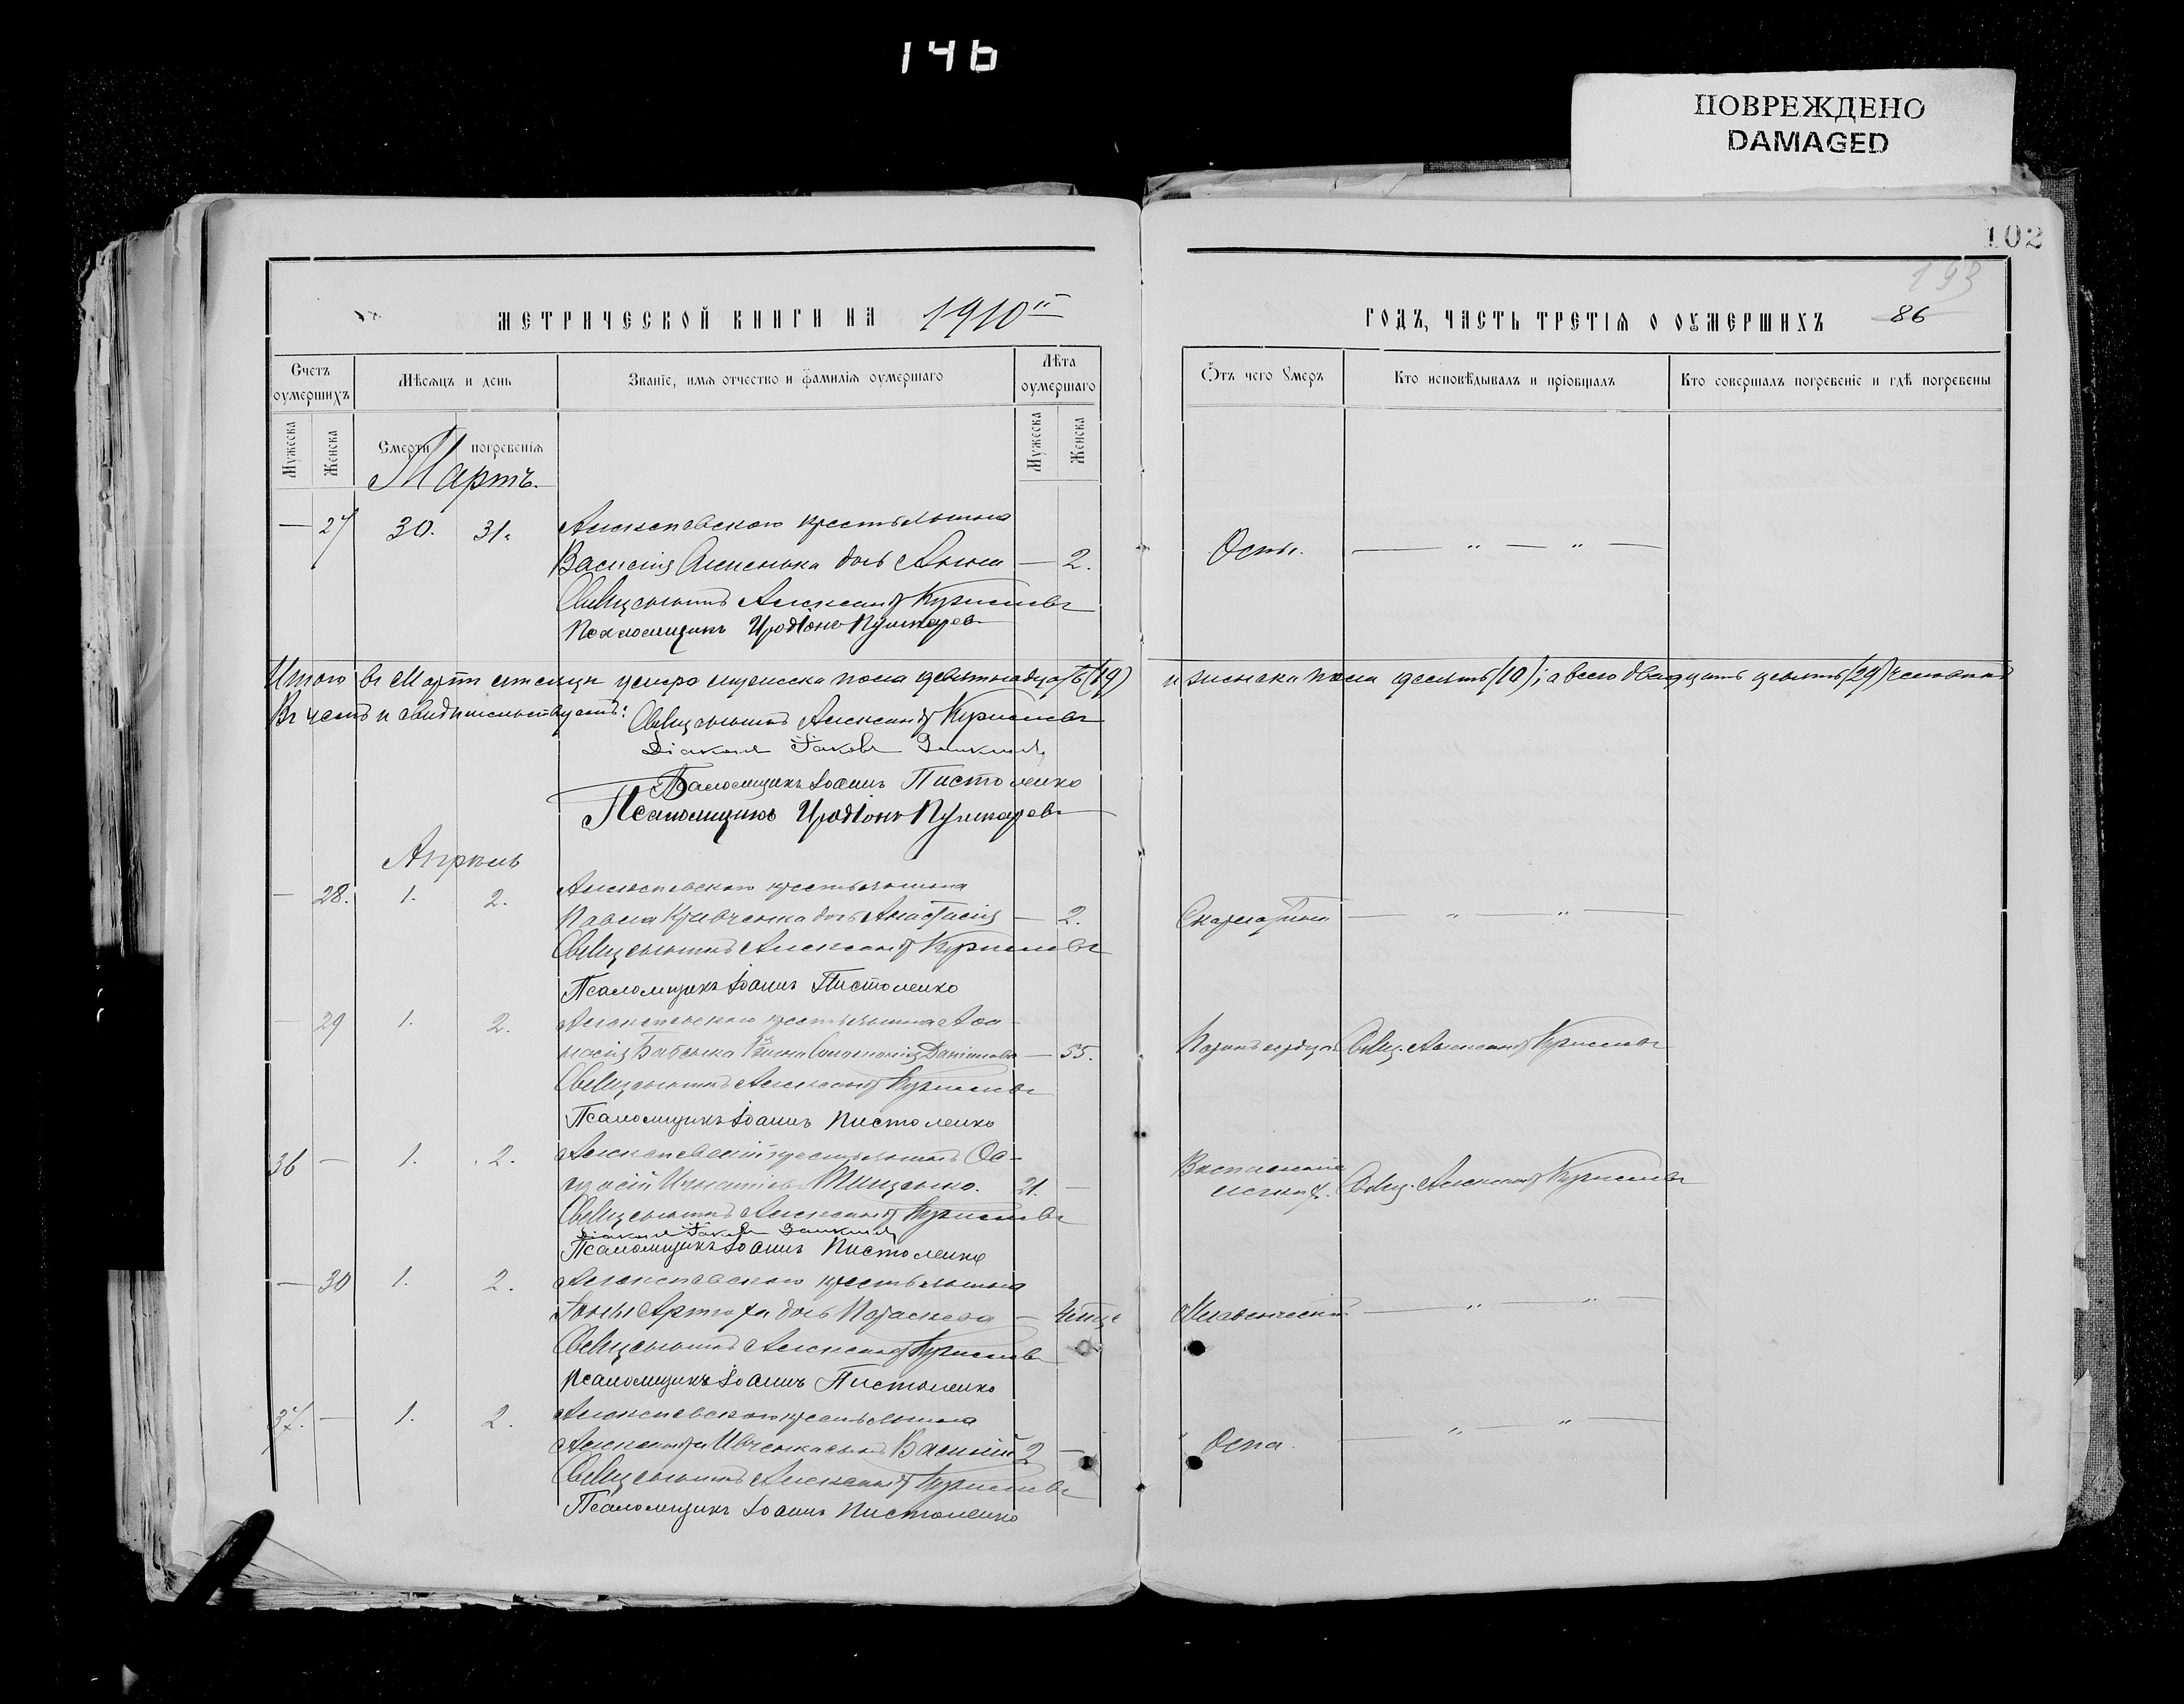 146
ПОВРЕЖДЕНО
DAMAGED
102
193
86
МЕТРИЧЕСКОЙ КНИГИ НА 1910й
ГОДЪ, ЧАСТЬ ТРЕТІЯ О ОУМЕРШИХЪ
Счетъ оумершихъ
Мѣсяцъ и день
Званіе, имя отчество и фамилія оумершаго
Лѣта оумершаго
Отъ чего умеръ
Кто исповѣдывалъ и пріобщалъ
Кто совершалъ погребеніе и гдѣ погребены
Мужеска
Женска
Смерти
погребенія
Мужеска
Женска
Мартъ.
— 27 30. 31. Алексѣевскаго крестьянина
Василія дочь Анна — 2. Оспы. — " — " —
Священникъ Александръ Куриловъ
Псаломщикъ Иродіонъ Пушкаревъ
Итого въ Мартѣ мѣсяцѣ умерло мужеска пола девятнадцать (19) и женска пола десять (10); а всего двадцать девять (29) человѣкъ
Въ чемъ и свидѣтельствуемъ: Священникъ Александръ Куриловъ
Діаконъ Іаковъ
Псаломщикъ Іоаннъ Пистоленко
Псаломщикъ Иродіонъ Пушкаревъ
Апрѣль
— 28. 1. 2. Алексѣевскаго крестьянина
Павла Кривченка дочь Анастасія — 2. Скарлатины — " — " —
Священникъ Александръ Куриловъ
Псаломщикъ Іоаннъ Пистоленко
— 29 1. 2. Алексѣевскаго крестьянина Аѳа-
насія Бабенка жена Соломонія Даніилова — 55. Порокъ сердца Свящ. Александръ Куриловъ
Священникъ Александръ Куриловъ
Псаломщикъ Іоаннъ Пистоленко
36 — 1. 2. Алексѣевскій крестьянинъ Ѳо-
Игнатіевъ Тищенко. 21. — Воспаленіе
легкихъ. Свящ. Александръ Куриловъ
Священникъ Александръ Куриловъ
Діаконъ Іаковъ
Псаломщикъ Іоаннъ Пистоленко
— 30 1. 2. Алексѣевскаго крестьянина
дочь Параскева — — " — " —
Священникъ Александръ Куриловъ
Псаломщикъ Іоаннъ Пистоленко
37. — 1. 2. Алексѣевскаго крестьянина
Александра Ивченка сынъ Василій 2 — Оспа. — " — " —
Священникъ Александръ Куриловъ
Псаломщикъ Іоаннъ Пистоленко